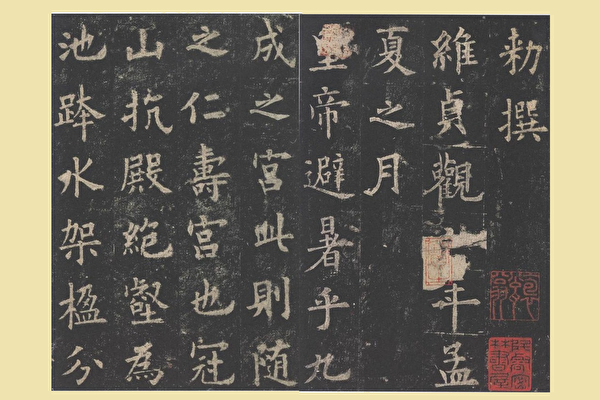 勅撰
維貞觀年孟
夏之月
皇帝避暑乎九
成之宮此則随
之仁壽宮也冠
山抗殿絕壑為
池跨水架楹分